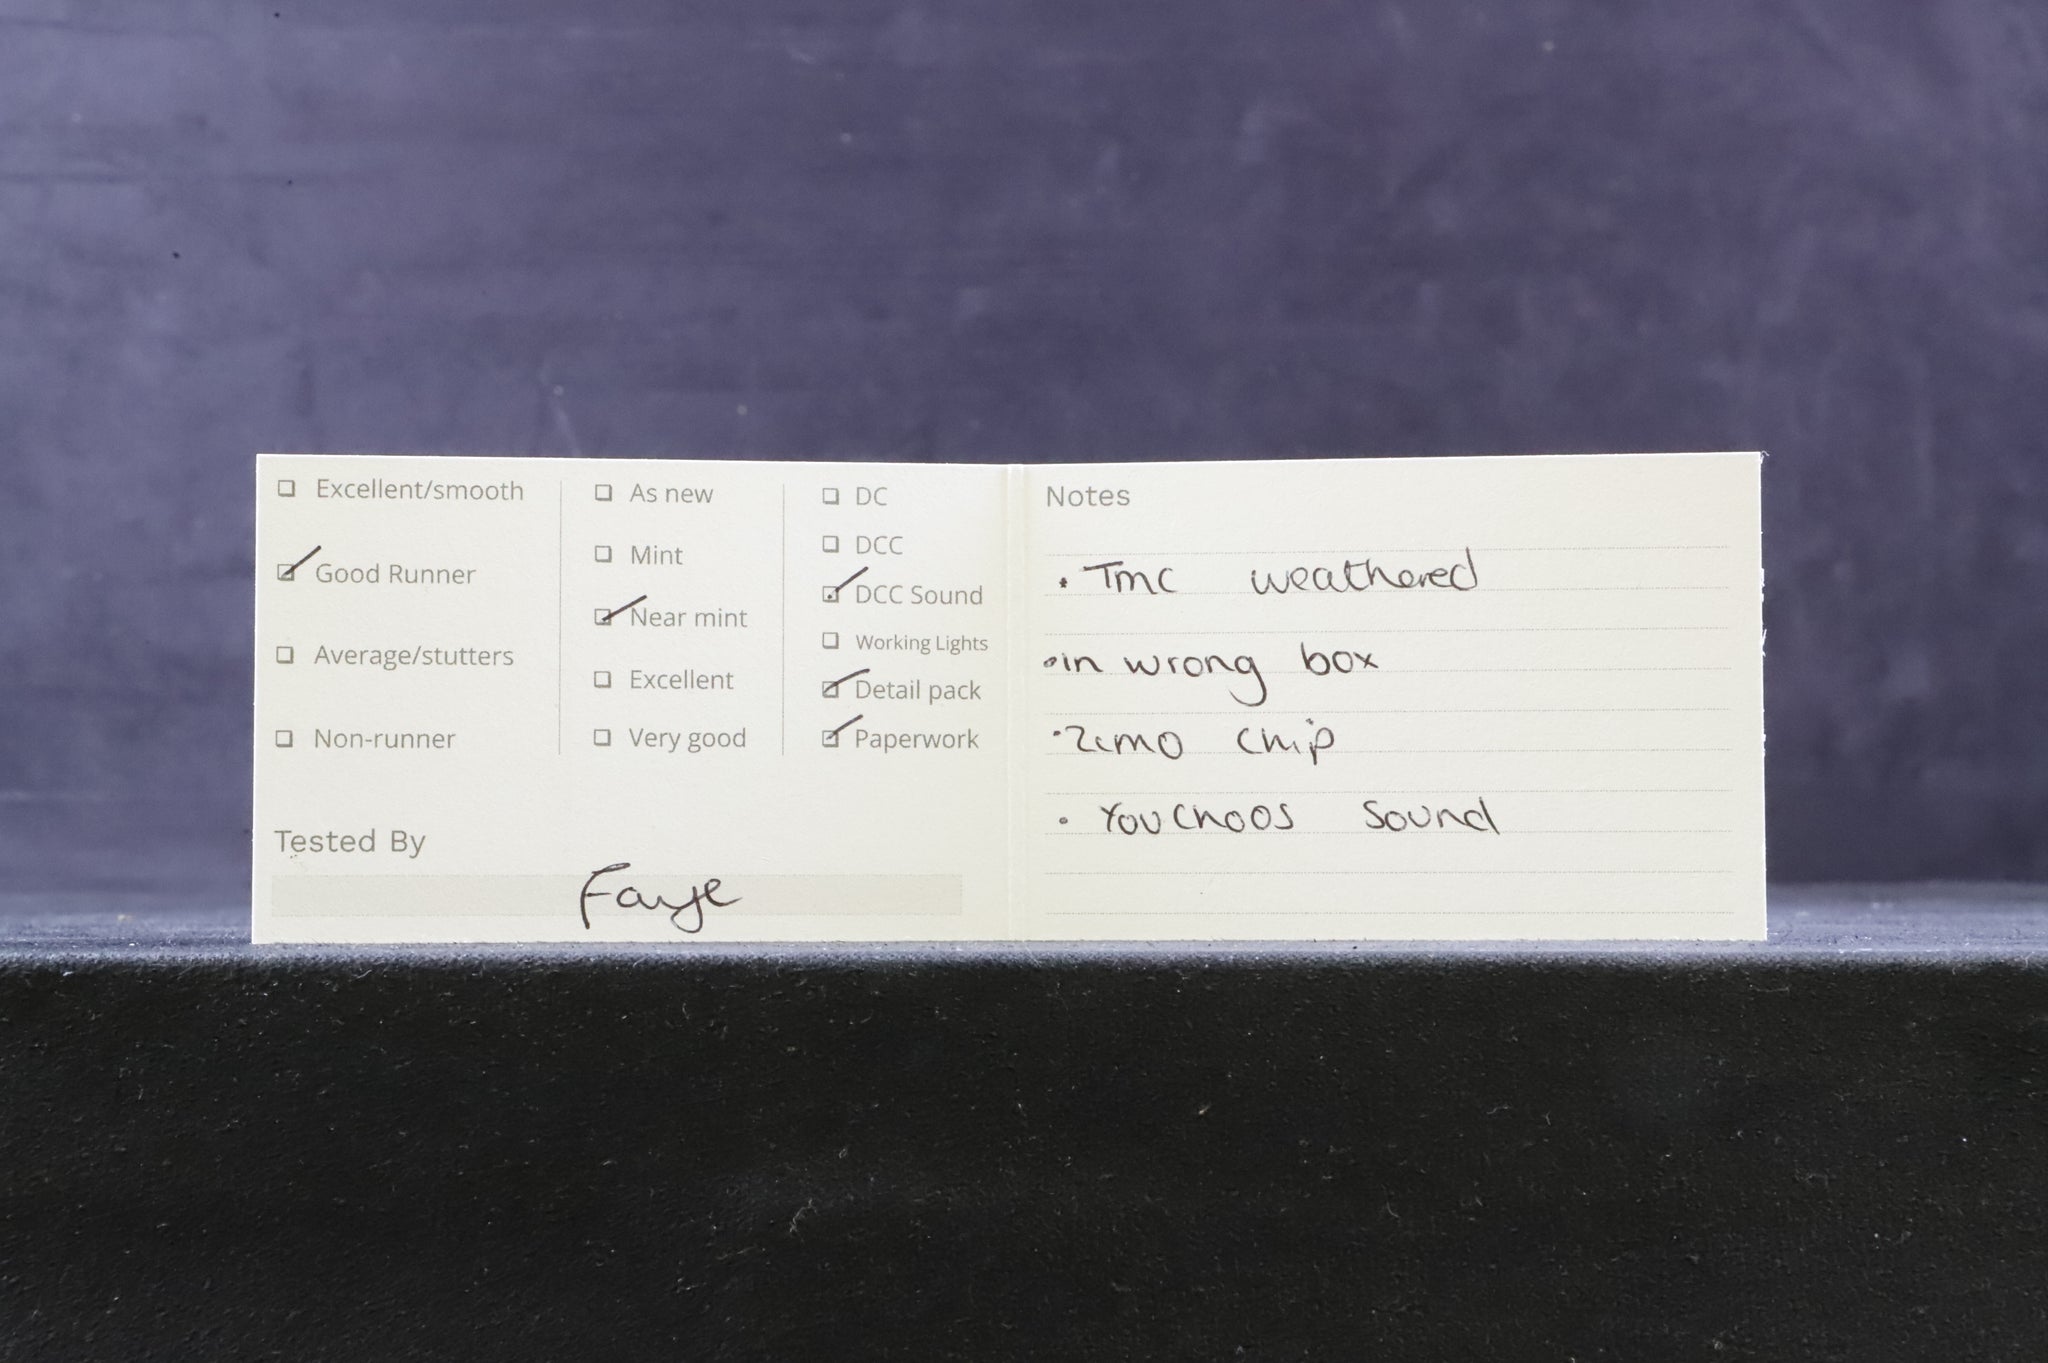 Excellent/smooth
Good Runner
Average/stutters
Non-runner
As new
Mint
Near mint
Excellent
Very good
DC
DCC
DCC Sound
Working Lights
Detail pack
Paperwork
Tested By
Faye
Notes
• Tmc weathered
• in wrong box
• Zimo chip
• Youchoos Sound